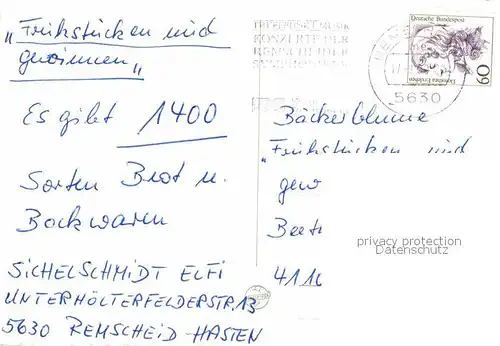 „Frühstücken und
gewinnen"
Es gibt 1400
Sorten Brot u.
Backwaren
SICHELSCHMIDT ELFI
UNTERHÖLTERFELDERSTR.13
5630 REMSCHEID HASTEN
KONZERTE DER
REMS
5630
Deutsche Bundespost
60
Bäckerblume
„Frühstücken und
gew
Beet
4116
privacy protection
Datenschutz